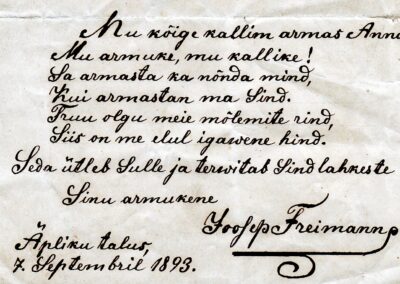 Mu kõige kallim armas Anna
Mu armuke, mu kallike!
Sa armasta ka nõnda mind,
Kui armastan ma Sind.
Truu olgu meie mõlemite rind,
Siis on me elul igawene hind.
Seda ütleb Sulle ja terwitab Sind lahkeste
Sinu armukene
Joosep Freimann
Äpliku talus,
7. Septembril 1893.